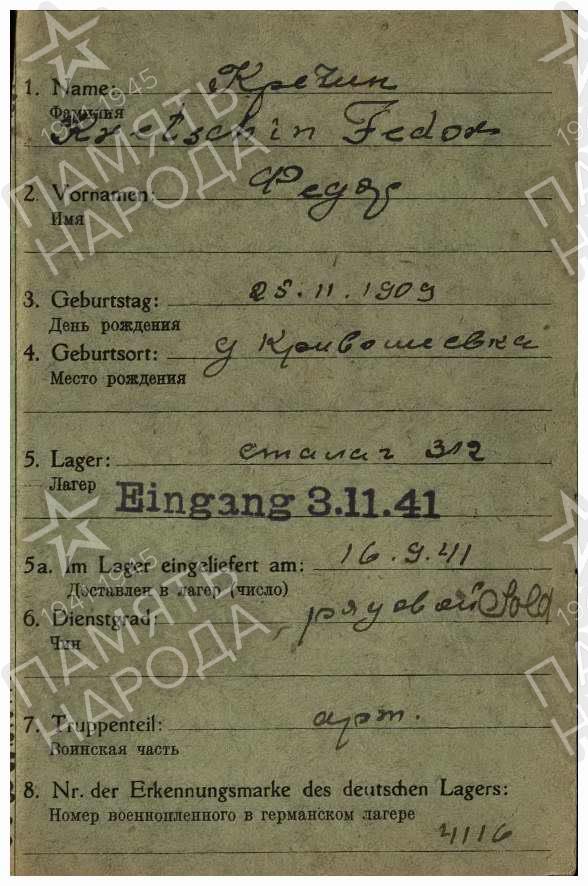 1. Name: Кречин
Фамилия
Kretschin Fedor
2. Vornamen: Федор
Имя
3. Geburtstag: 25.11.1909
День рождения
4. Geburtsort: д Кривошеевка
Место рождения
5. Lager: сталаг 312
Лагер
Eingang 3.11.41
5a. Im Lager eingeliefert am: 16.9.41
Доставлен в лагер (число)
6. Dienstgrad: рядовой Sold
Чин
7. Truppenteil: арт.
Воинская часть
8. Nr. der Erkennungsmarke des deutschen Lagers:
Номер военнопленного в германском лагере
4116
1941-1945
ПАМЯТЬ
НАРОДА
1941-1945
ПАМЯТЬ
НАРОДА